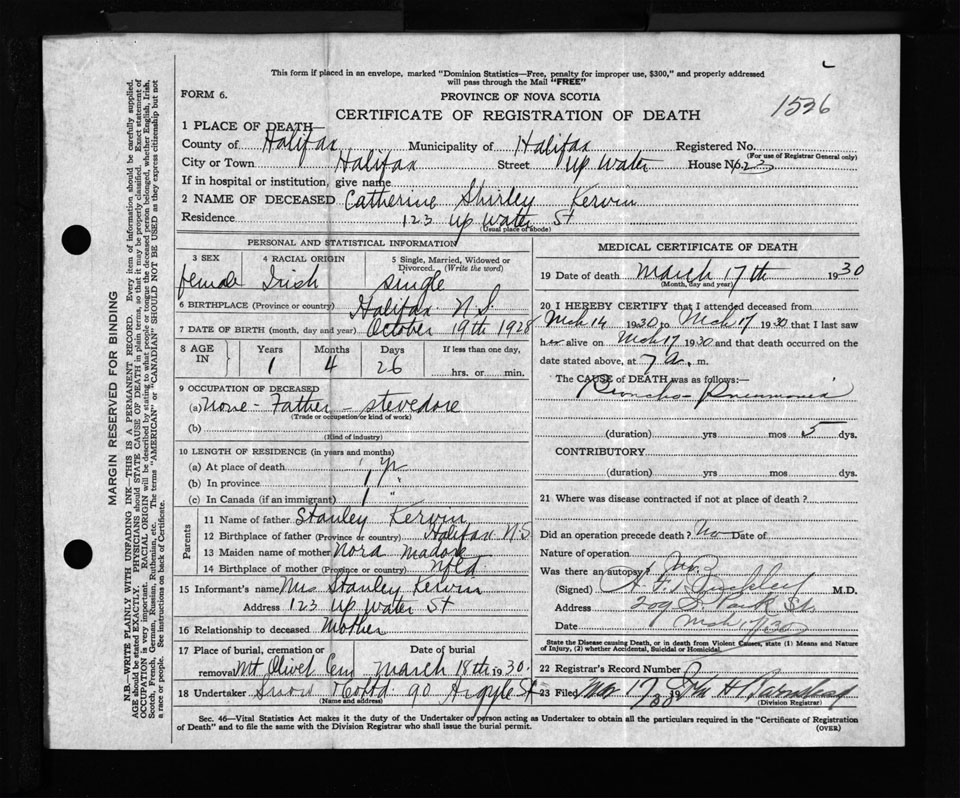 This form if placed in an envelope, marked "Dominion Statistics—Free, penalty for improper use, $300," and properly addressed
will pass through the Mail "FREE"
FORM 6.
PROVINCE OF NOVA SCOTIA
1536
CERTIFICATE OF REGISTRATION OF DEATH
1 PLACE OF DEATH—
County of Halifax Municipality of Halifax Registered No.
(For use of Registrar General only)
City or Town Halifax Street Up Water House No. 123
If in hospital or institution, give name
2 NAME OF DECEASED Catherine Shirley Kervin
Residence 123 Up Water St
(Usual place of abode)
PERSONAL AND STATISTICAL INFORMATION
3 SEX 4 RACIAL ORIGIN 5 Single, Married, Widowed or Divorced. (Write the word)
female Irish single
6 BIRTHPLACE (Province or country) Halifax N.S.
7 DATE OF BIRTH (month, day and year) October 19th 1928
8 AGE IN Years Months Days If less than one day,
1 4 26 hrs. or min.
9 OCCUPATION OF DECEASED
(a) None - Father - stevedore
(Trade or occupation or kind of work)
(b)
(Kind of industry)
10 LENGTH OF RESIDENCE (in years and months)
(a) At place of death 1 yr
(b) In province 1 "
(c) In Canada (if an immigrant) 1 "
Parents
11 Name of father Stanley Kervin
12 Birthplace of father (Province or country) Halifax N.S
13 Maiden name of mother Nora Madore
14 Birthplace of mother (Province or country) Nfld
15 Informant's name Mrs Stanley Kervin
Address 123 Up Water St
16 Relationship to deceased Mother
17 Place of burial, cremation or removal Date of burial
Mt Olivet Cem March 18th 1930
18 Undertaker Snow & Co Ltd 90 Argyle St
(Name and address)
MEDICAL CERTIFICATE OF DEATH
19 Date of death March 17th 1930
(Month, day and year)
20 I HEREBY CERTIFY that I attended deceased from
Mch 14 1930 to Mch 17 1930 that I last saw
her alive on Mch 17 1930 and that death occurred on the
date stated above, at 7 a. m.
The CAUSE of DEATH was as follows:—
Broncho-Pneumonia
(duration) yrs mos 5 dys.
CONTRIBUTORY
(duration) yrs mos dys.
21 Where was disease contracted if not at place of death?
Did an operation precede death? No Date of
Nature of operation
Was there an autopsy? No
(Signed) Buckley M.D.
Address 209 S. Park St.
Date Mch 17/30
State the Disease causing Death, or in death from Violent Causes, state (1) Means and Nature
of Injury, (2) whether Accidental, Suicidal or Homicidal.
22 Registrar's Record Number
23 Filed Mar 17 1930
(Division Registrar)
Sec. 46—Vital Statistics Act makes it the duty of the Undertaker or person acting as Undertaker to obtain all the particulars required in the "Certificate of Registration
of Death" and to file the same with the Division Registrar who shall issue the burial permit.
(OVER)
MARGIN RESERVED FOR BINDING
N.B.—WRITE PLAINLY WITH UNFADING INK—THIS IS A PERMANENT RECORD. Every item of information should be carefully supplied.
AGE should be stated EXACTLY. PHYSICIANS should STATE CAUSE OF DEATH in plain terms, so that it may be properly classified. Exact statement of
OCCUPATION is very important. RACIAL ORIGIN will be described by stating to what people or tongue the deceased person belonged, whether English, Irish,
Scotch, French, German, Russian, Ruthenian, etc. The terms "AMERICAN" or "CANADIAN" SHOULD NOT BE USED as they express citizenship but not
a race or people. See instructions on back of Certificate.